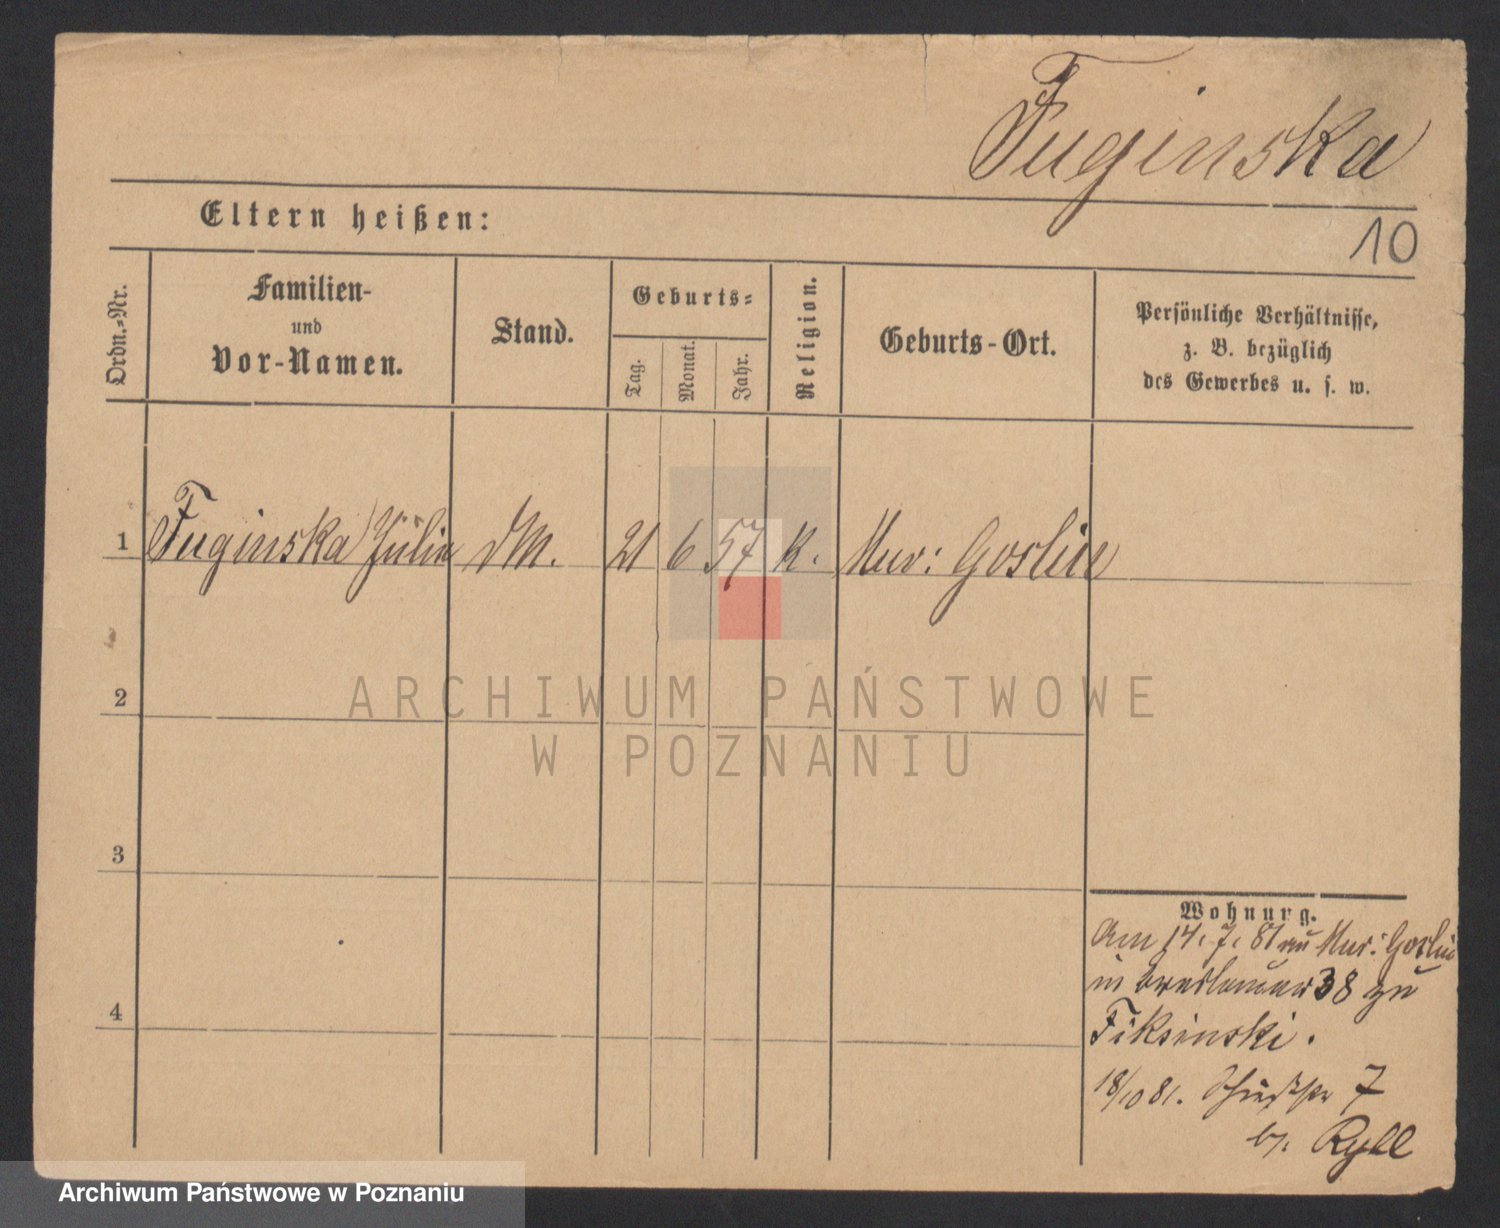 Fuginska
Eltern heißen:
10
Ordn.-Nr.
Familien-
und
Vor-Namen.
Stand.
Geburts-
Tag.
Monat.
Jahr.
Religion.
Geburts-Ort.
Persönliche Verhältnisse,
z. B. bezüglich
des Gewerbes u. s. w.
1 Fuginska Julie dM. 21 6 57 k. Mur: Goslin
2
3
4
Wohnung.
Am 14. 7. 81 au Mur: Goslin
in Breslauer 38 zu
Fiksinski.
18/10 81. 7
by. Ryll
ARCHIWUM PAŃSTWOWE
W POZNANIU
Archiwum Państwowe w Poznaniu